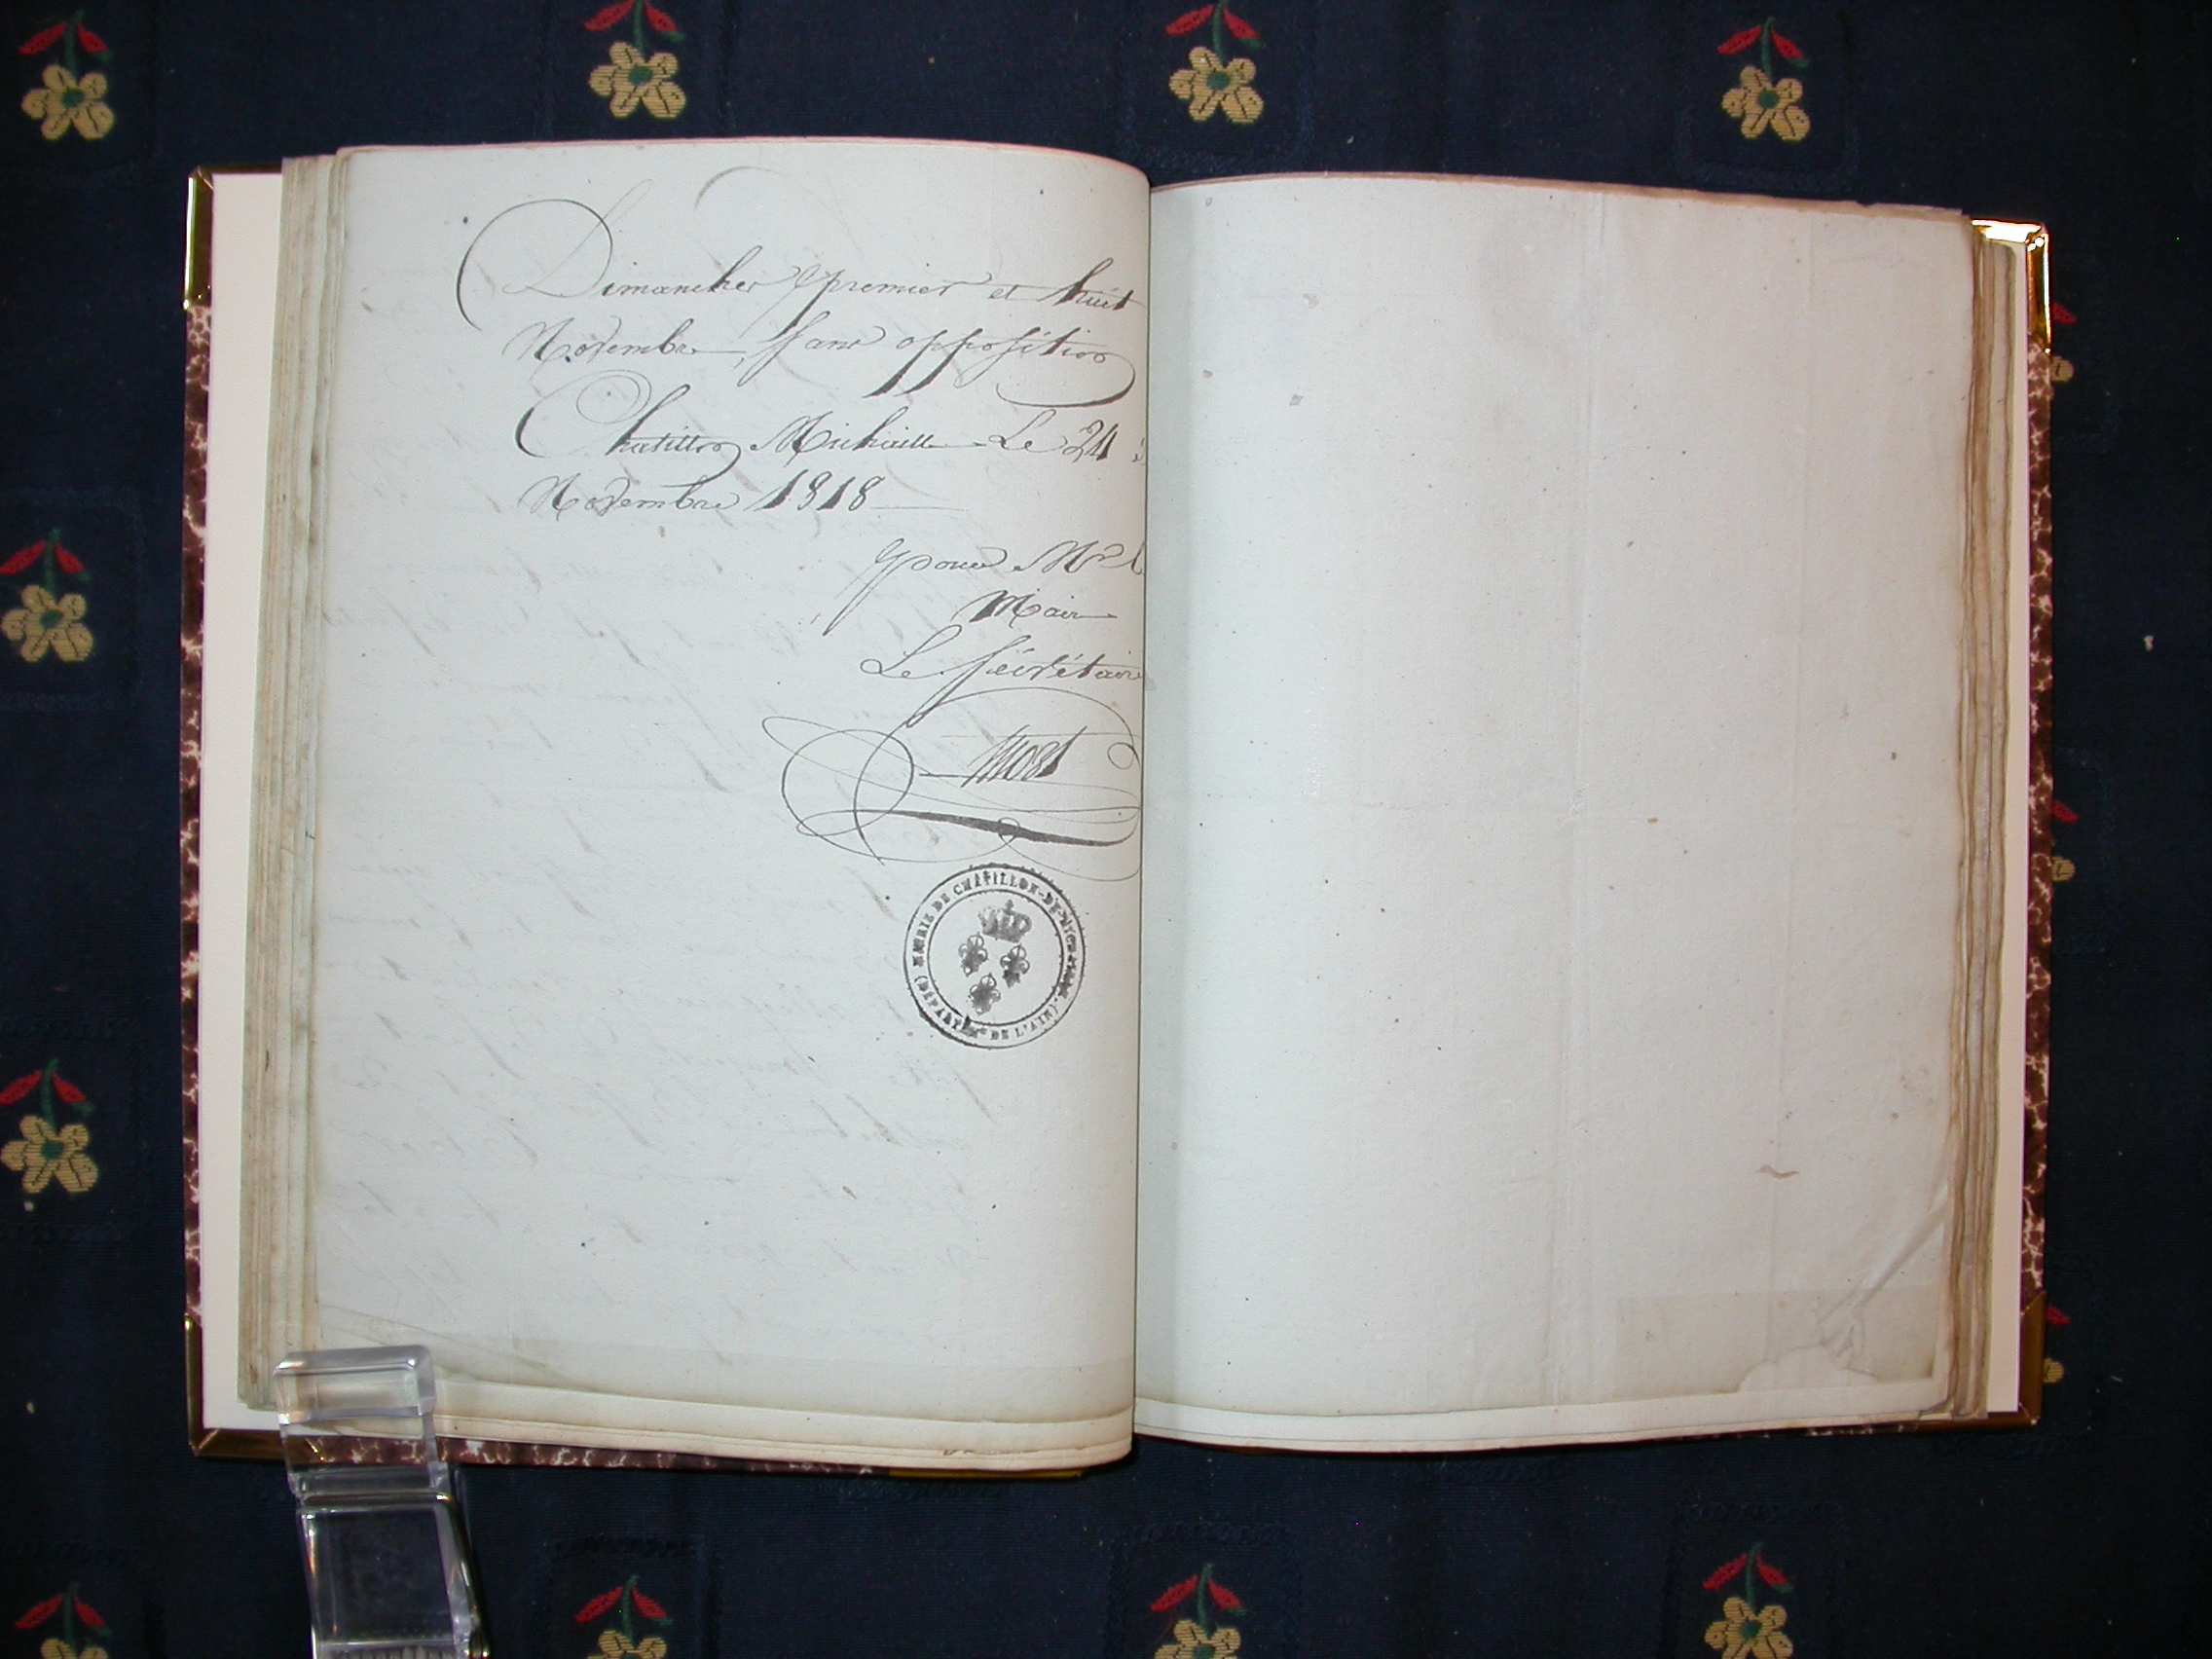 Dimanches premier et huit
Novembre, sans opposition
Chatillon Michaille Le 24
Novembre 1818
pour Mr
Maire
Le Sécrétaire
MAIRIE DE CHATILLON-DE-MICHAILLE (DÉPARTEMt DE L'AIN)